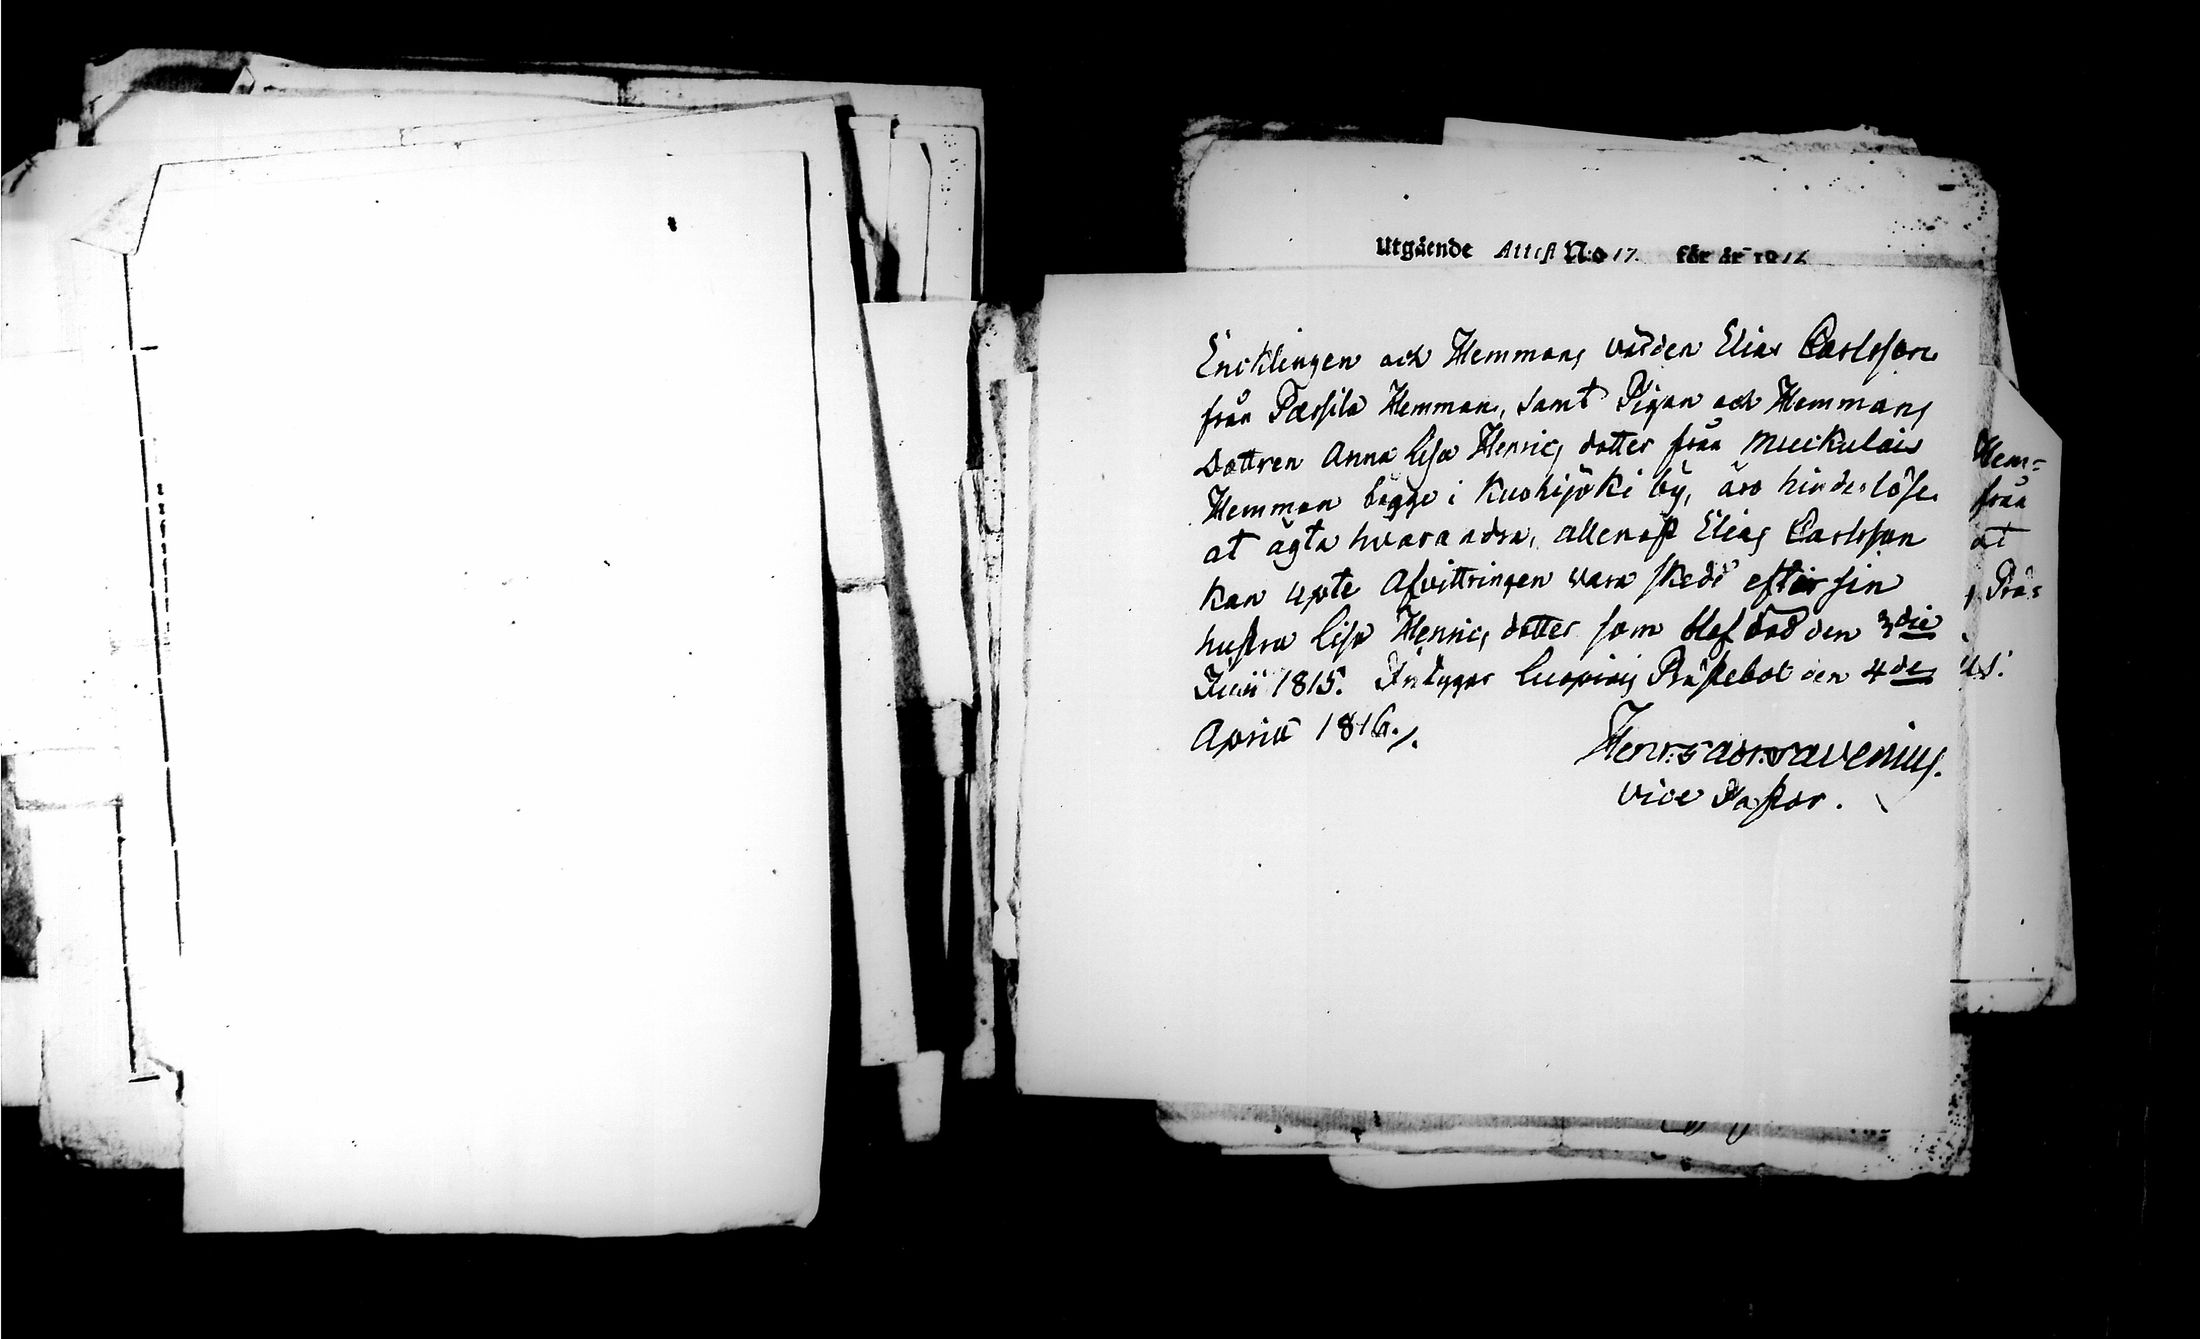 Utgående Attest N:o 17. för år 1816
Encklingen och Hemmans värden Elias Carlsson
från Parsila Hemman, samt Pigan och Hemmans
dottren Anna Lisa Henrics dotter från Muckulais
Hemman bägge i Kuohijoki by, äro hinderlöse
at ägta hvarandra, allenast Elias Carlsson
kan upte Afvittringen vara skedd efter sin
hustru Lisa Henrics dotter som blef död den 3die
Junii 1815. Intygar Luopiois Prästebol den 4de
April 1816./.
vice Pastor.
Hem=
från
at